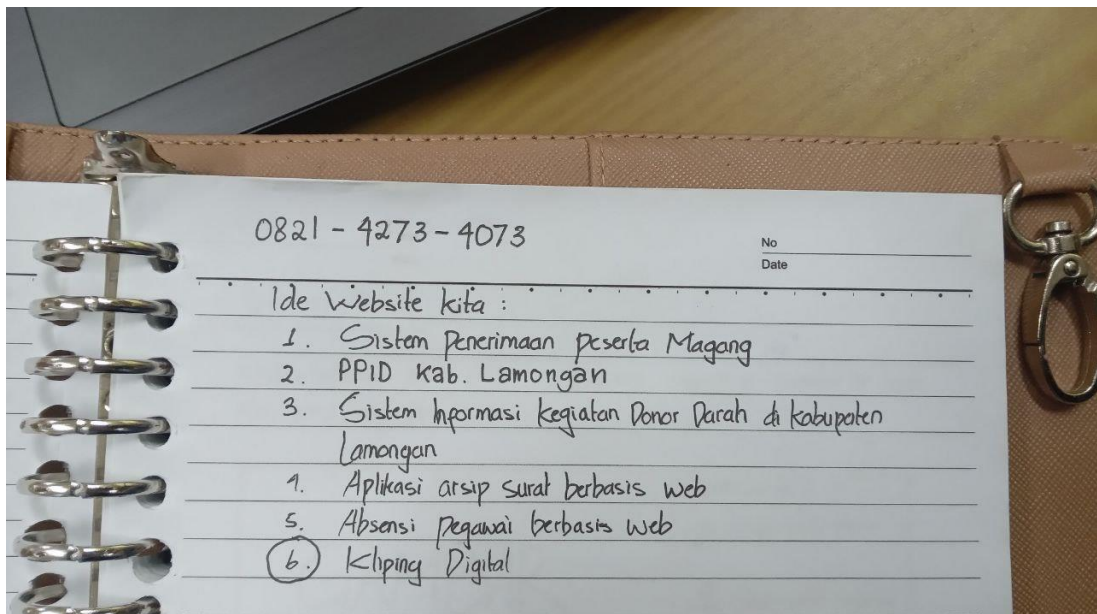 0821 - 4273 - 4073
No
Date
Ide Website kita :
1. Sistem penerimaan peserta Magang
2. PPID Kab. Lamongan
3. Sistem Informasi kegiatan Donor Darah di kabupaten
Lamongan
4. Aplikasi arsip surat berbasis web
5. Absensi pegawai berbasis web
6. Kliping Digital